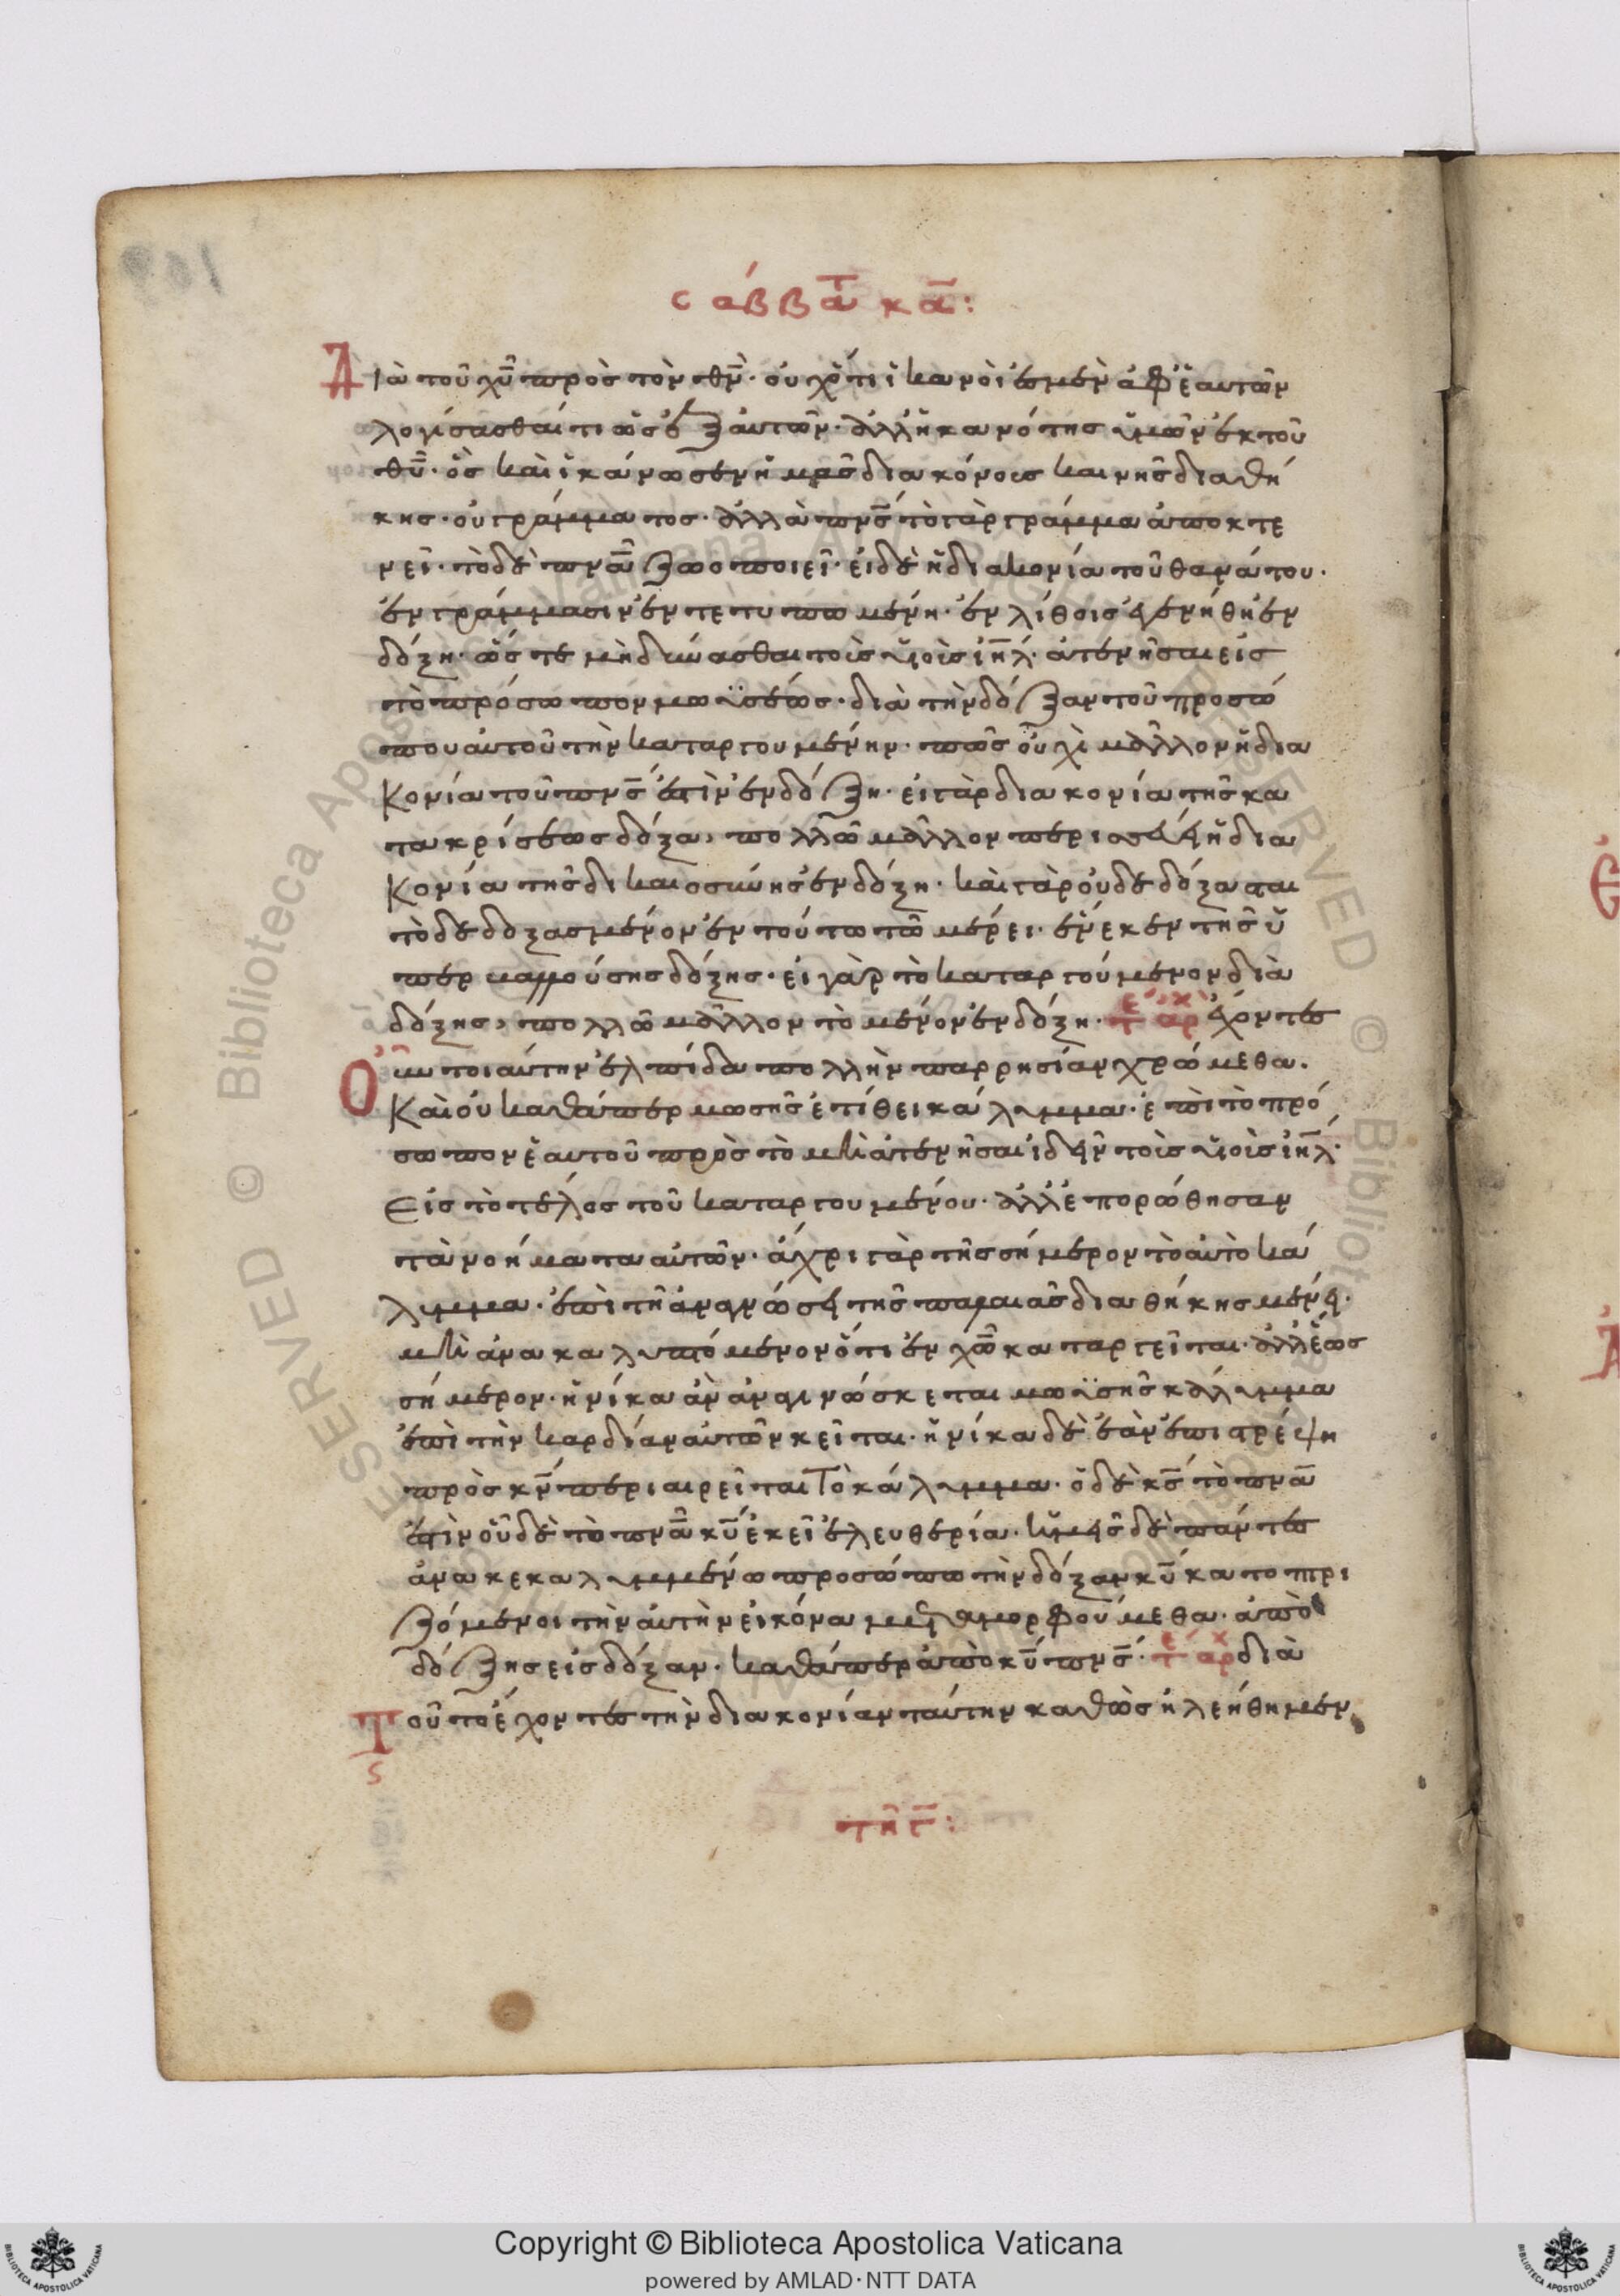 σάββατ κα:
Διὰ τοῦ χῦ πρὸς τὸν θν· οὐχ ὅτι ἱκανοί ἐσμεν ἀφ' ἑαυτῶν
λογίσασθαί τι ὡς ἐξ αὑτῶν· ἀλλ' ἡ κανότης ὑμῶν ἐκ τοῦ
θῦ· ὃς καὶ ἱκάνωσεν ἡμᾶς διακόνους καινῆς διαθή
κης· οὐ γράμματος· ἀλλὰ πνς τὸ γὰρ γράμμα ἀποκτε
νεῖ· τὸ δὲ πνα ζωοποιεῖ· εἰ δὲ ἡ διακονία τοῦ θανάτου·
ἐν γράμμασιν ἐντετυπωμένη· ἐν λίθοις ἐγενήθη ἐν
δόξη· ὥστε μὴ δύνασθαι τοὺς υἱοὺς ιηλ· ἀτενῆσαι εἰς
τὸ πρόσωπον μωϋσέως· διὰ τὴν δόξαν τοῦ προσώ
που αὐτοῦ τὴν καταργουμένην· πῶς οὐχὶ μᾶλλον ἡ δια
κονία τοῦ πνς ἐστὶν ἐν δόξη· εἰ γὰρ διακονία τῆς κα
τακρίσεως δόξα, πολλῶ μᾶλλον περισσεύει ἡ δια
κονία τῆς δικαιοσύνης ἐν δόξη· καὶ γὰρ οὐδὲ δόξασται
τὸ δεδοξασμένον ἐν τούτω τῶ μέρει· ἕνεκεν τῆς ὑ
περβαλλούσης δόξης· εἰ γὰρ τὸ καταργούμενον διὰ
δόξης, πολλῶ μᾶλλον τὸ μένον ἐν δόξη· τε αρχ ἔχοντες
Οὖν τοιαύτην ἐλπίδα πολλὴν παρρησίαν χρώμεθα.
Καὶ οὐ καθάπερ μωσῆς ἐτίθει κάλυμμα· ἐπὶ τὸ πρό
σωπον ἑαυτοῦ πρὸς τὸ μὴ ἀτενῆσαι ἰδεῖν τοὺς υἱοὺς ιηλ·
Εἰς τὸ τέλος τοῦ καταργουμένου· ἀλλ' ἐπορώθησαν
τὰ νοήματα αὐτῶν· ἄχρι γὰρ τῆς σήμερον τὸ αὐτὸ κά
λυμμα· ἐπὶ τῆ ἀναγνώσει τῆς παλαιᾶς διαθήκης μένει·
μὴ ἀνακαλυπτόμενον ὅτι ἐν χω καταργεῖται· ἀλλ' ἕως
σήμερον· ἡνίκα ἂν ἀναγινώσκεται μωϋσῆς κάλυμμα
ἐπὶ τὴν καρδίαν αὐτῶν κεῖται· ἡνίκα δὲ ἐὰν ἐπιστρέψη
πρὸς κν περιαιρεῖται τὸ κάλυμμα· ὁ δὲ κς τὸ πνα
ἐστὶν οὗ δὲ τὸ πνα κυ ἐκεῖ ἐλευθερία· ἡμεῖς δὲ πάντες
ἀνακεκαλυμμένω προσώπω τὴν δόξαν κυ κατοπτρι
ζόμενοι τὴν αὐτὴν εἰκόνα μεταμορφούμεθα· ἀπὸ
δόξης εἰς δόξαν· καθάπερ ἀπὸ κυ πνς· τε αρχ διὰ
Τοῦτο ἔχοντες τὴν διακονίαν ταύτην καθὼς ἠλεήθημεν
τῆ Γ: